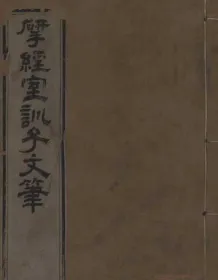 揅經室訓子文筆